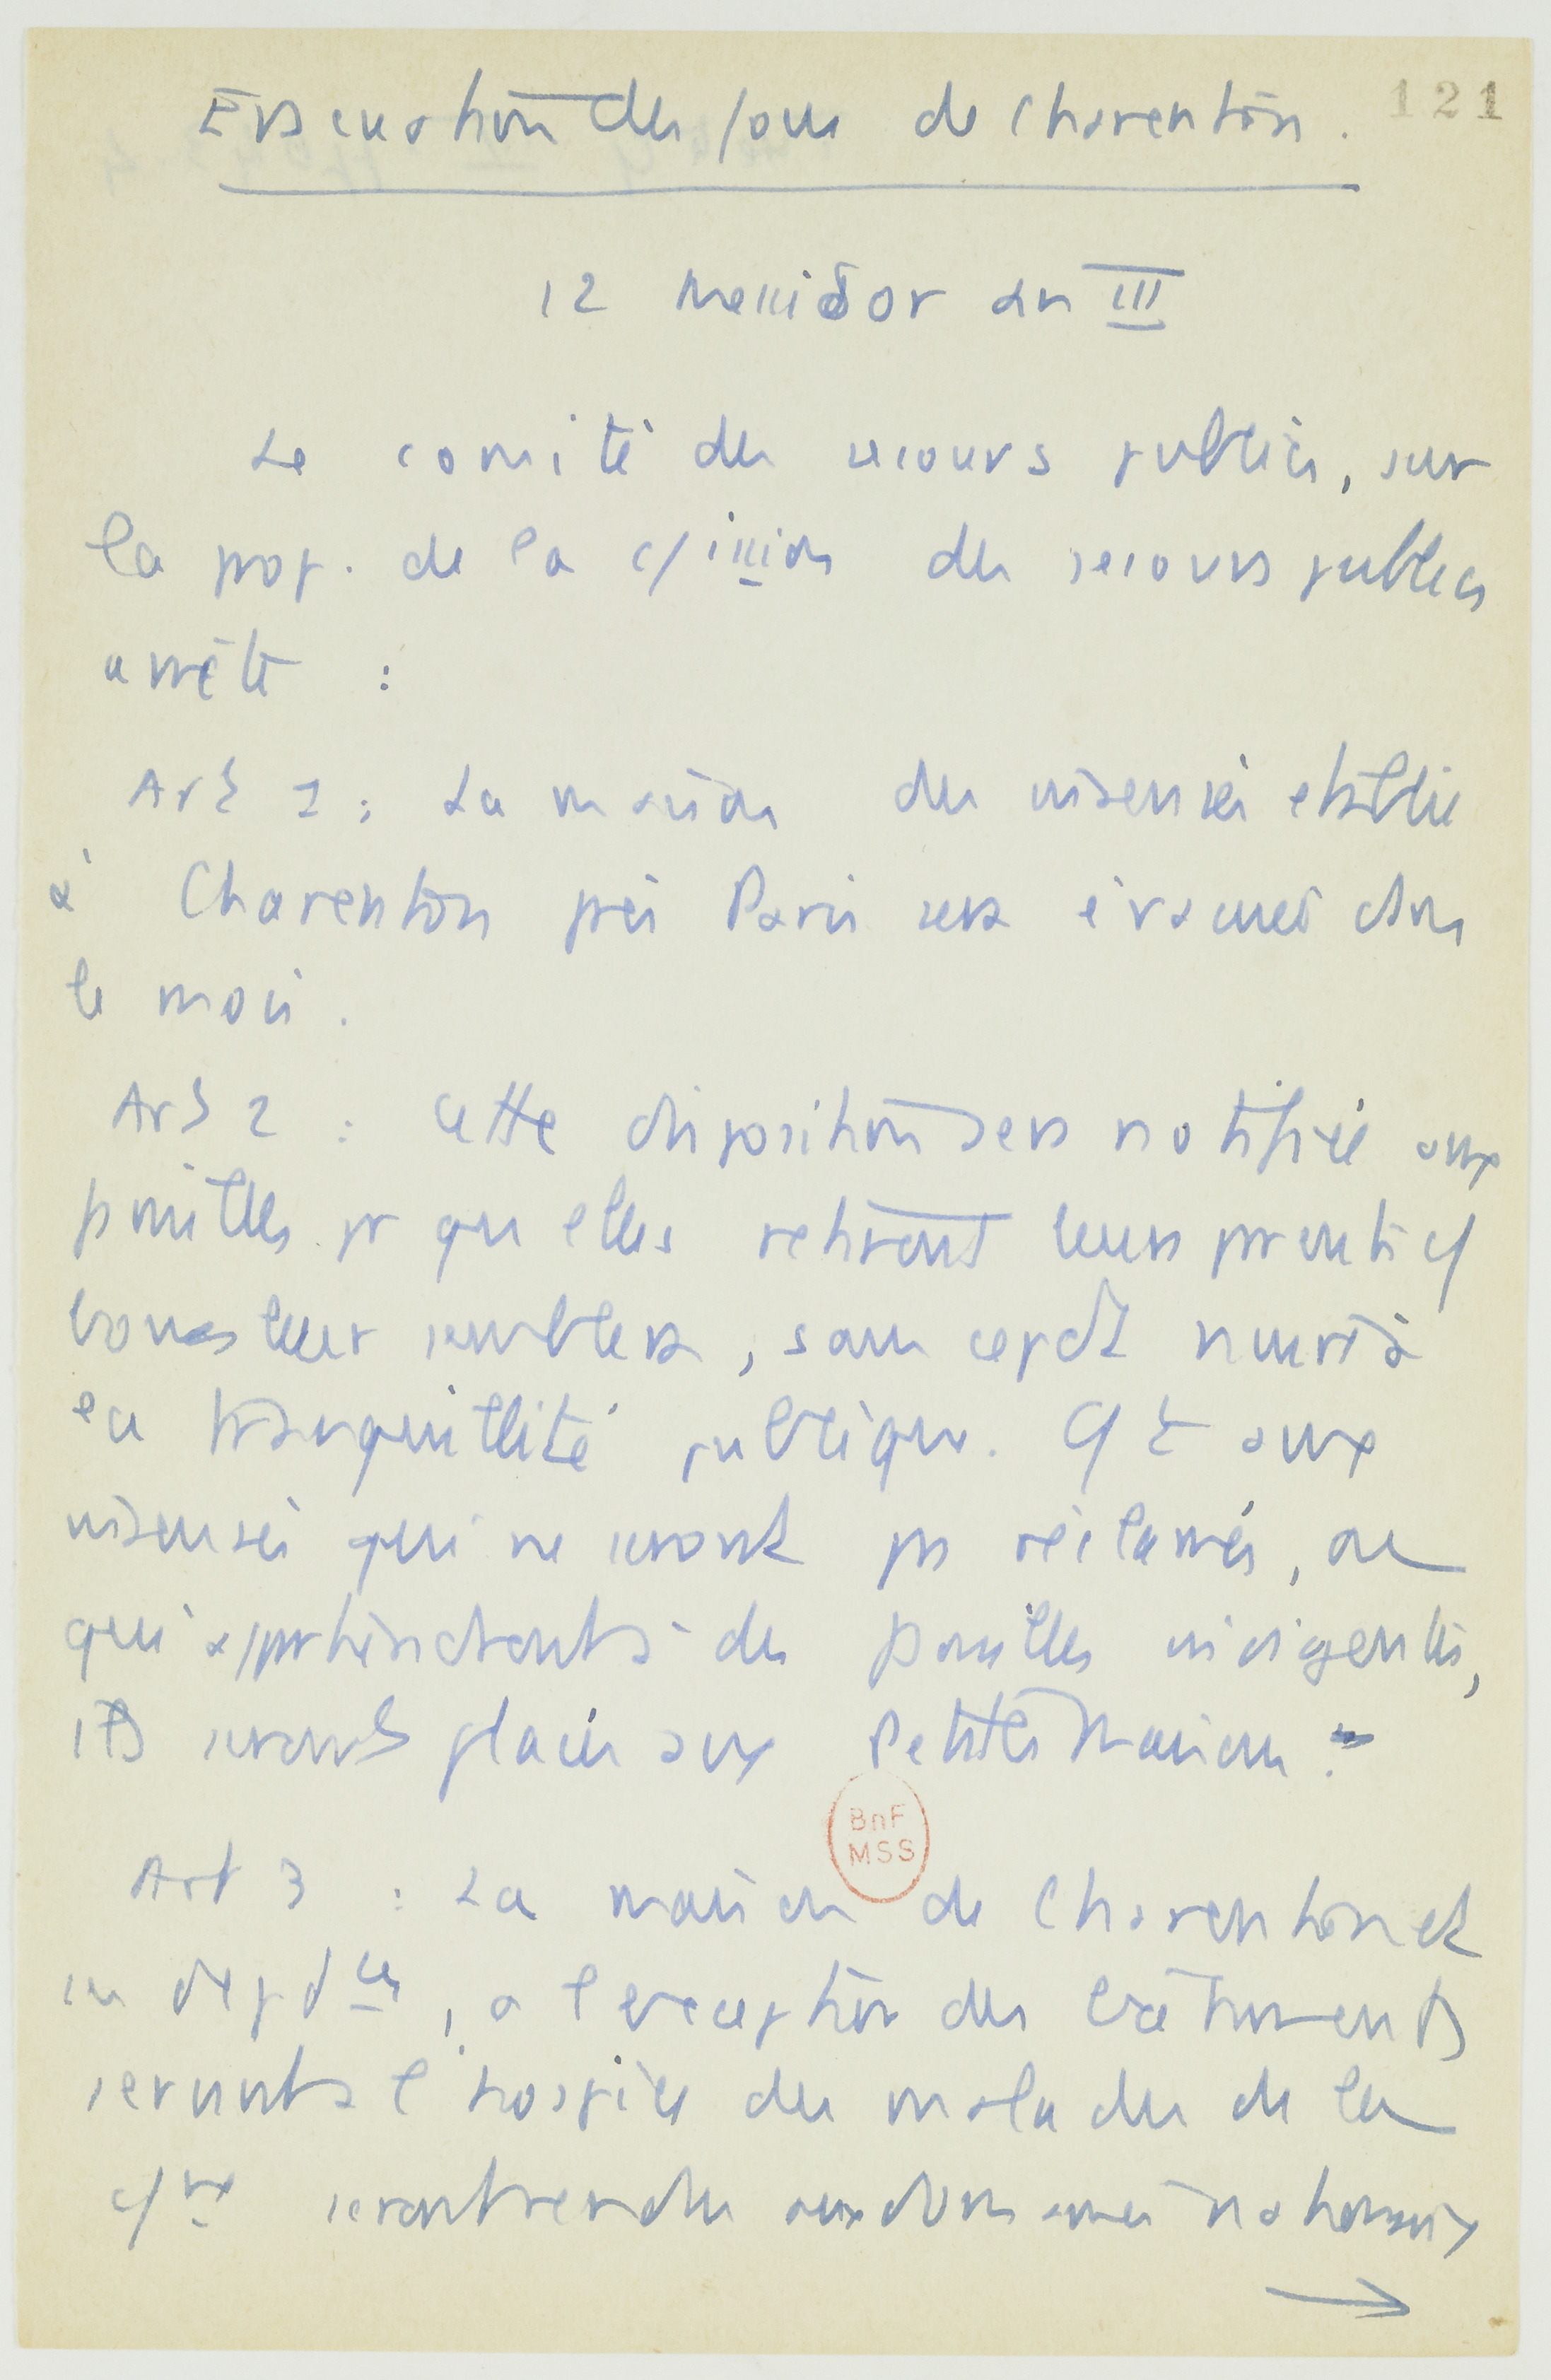 Evacuation des fous de Charenton.
121
12 Messidor an III
Le comité des secours publics, sur
la prop. de la c/ission des secours publics
arrête :
Art 1 : La maison des insensés etablie
à Charenton près Paris sera évacuée dans
le mois.
Art 2 : Cette disposition sera notifiée aux
familles pr qu elles retirent leurs parents c/
bon leur semblera, sans cepdt nuire à
la tranquillité publique. Qt aux
insensés qui ne seront pas réclamés, ou
qui appartiendront à des familles indigentes,
ils seront placés aux Petites Maisons.
BnF
MSS
Art 3 : La maison de Charenton et
ses depdces, a l exception des bâtiments
servant à l'hospice des malades de la
c/ne seront rendus aux domaines nationaux
→